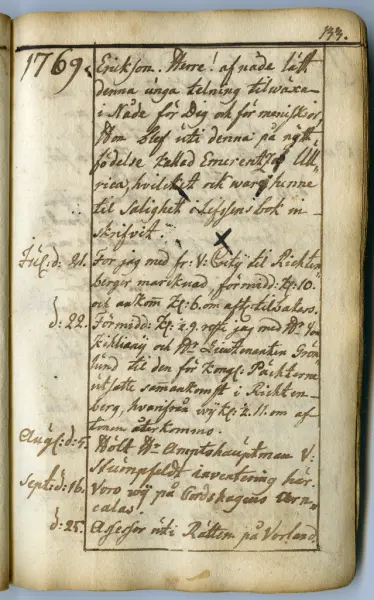 133.
1769. Erikson. Herre! af nåde lått
denna unga telning tilwäxa
i Nåde för Dig och för meniskior,
Hon blef uti denna på nytt
födelse kallad Emerentza Ull
rica, hvilcket ock ware henne
til Salighet i Lifsens bok in-
skrifvit.
Jul: d: 21. For jag med fr: V: til Richten
berger marcknad, förmidd: Kl: 10.
och ankom Kl: 6. om aft: tilbakars.
d: 22. Förmidd: Kl: 29. reste jag med Hr Von
och Hr Lieutenanten Grön
lund til den för Kongl: Pächterne
utsatte samankomst i Richten-
berg, hvarifrån wij Kl: 11. om af-
tonen återkommo.
Aug: d: 5. Hölt Hr Amptshauptman V:
Stumpfeldt inventering här.
Sept: d: 16. Voro wij på Cordshagens Vern-
calas.
d: 25. Assessor uti Rätten på Vorland.